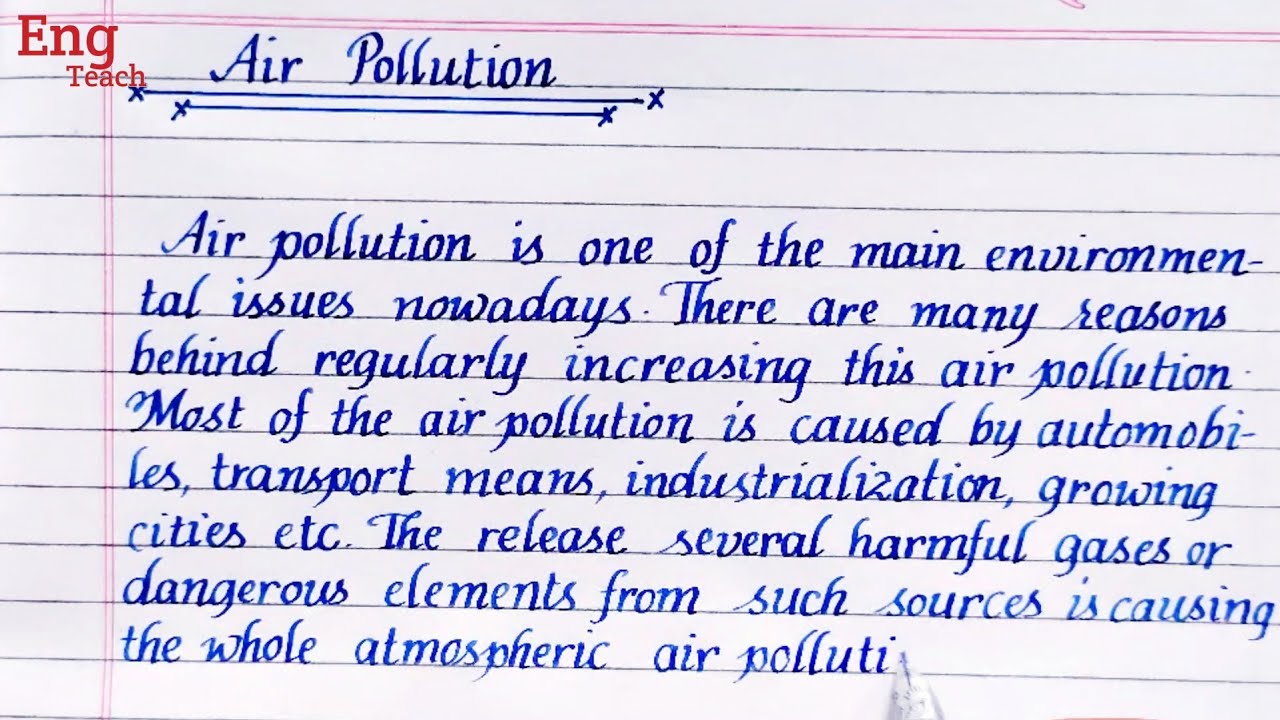 Eng
Teach
Air Pollution
Air pollution is one of the main environmen-
tal issues nowadays. There are many reasons
behind regularly increasing this air pollution.
Most of the air pollution is caused by automobi-
les, transport means, industrialization, growing
cities etc. The release several harmful gases or
dangerous elements from such sources is causing
the whole atmospheric air polluti